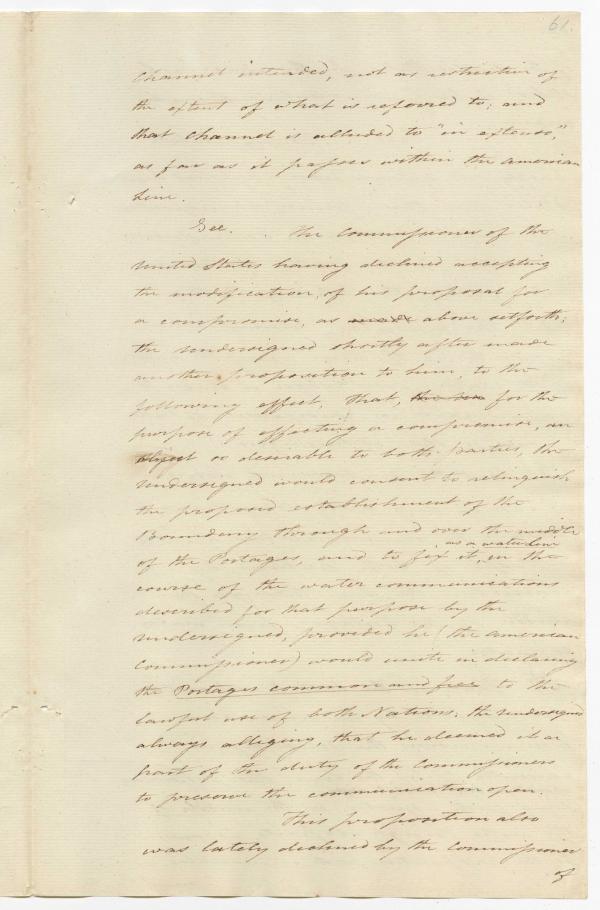 61.
Channel intended, not as restrictive of
the extent of what is referred to; and
that Channel is alluded to "in extenso",
as far as it passes within the american
line.
The Commissioner of the
United States having declined accepting
the modification, of his proposal for
a compromise, as made above setforth;
the Undersigned shortly after made
another proposition to him, to the
following effect. That, for the
purpose of effecting a compromise, an
object so desirable to both Parties, the
Undersigned would consent to relinquish
the proposed establishment of the
Boundary through and over the middle
of the Portages, and to fix it, as a water line in the
course of the water communications
described for that purpose by the
Undersigned, provided he (the american
Commissioner) would unite in declaring
the Portages common and free to the
lawful use of both Nations; the undersigned
always alleging, that he deemed it a
part of the duty of the Commissioners
to preserve the communication open.
This proposition also
was lately declined by the Commissioner
of